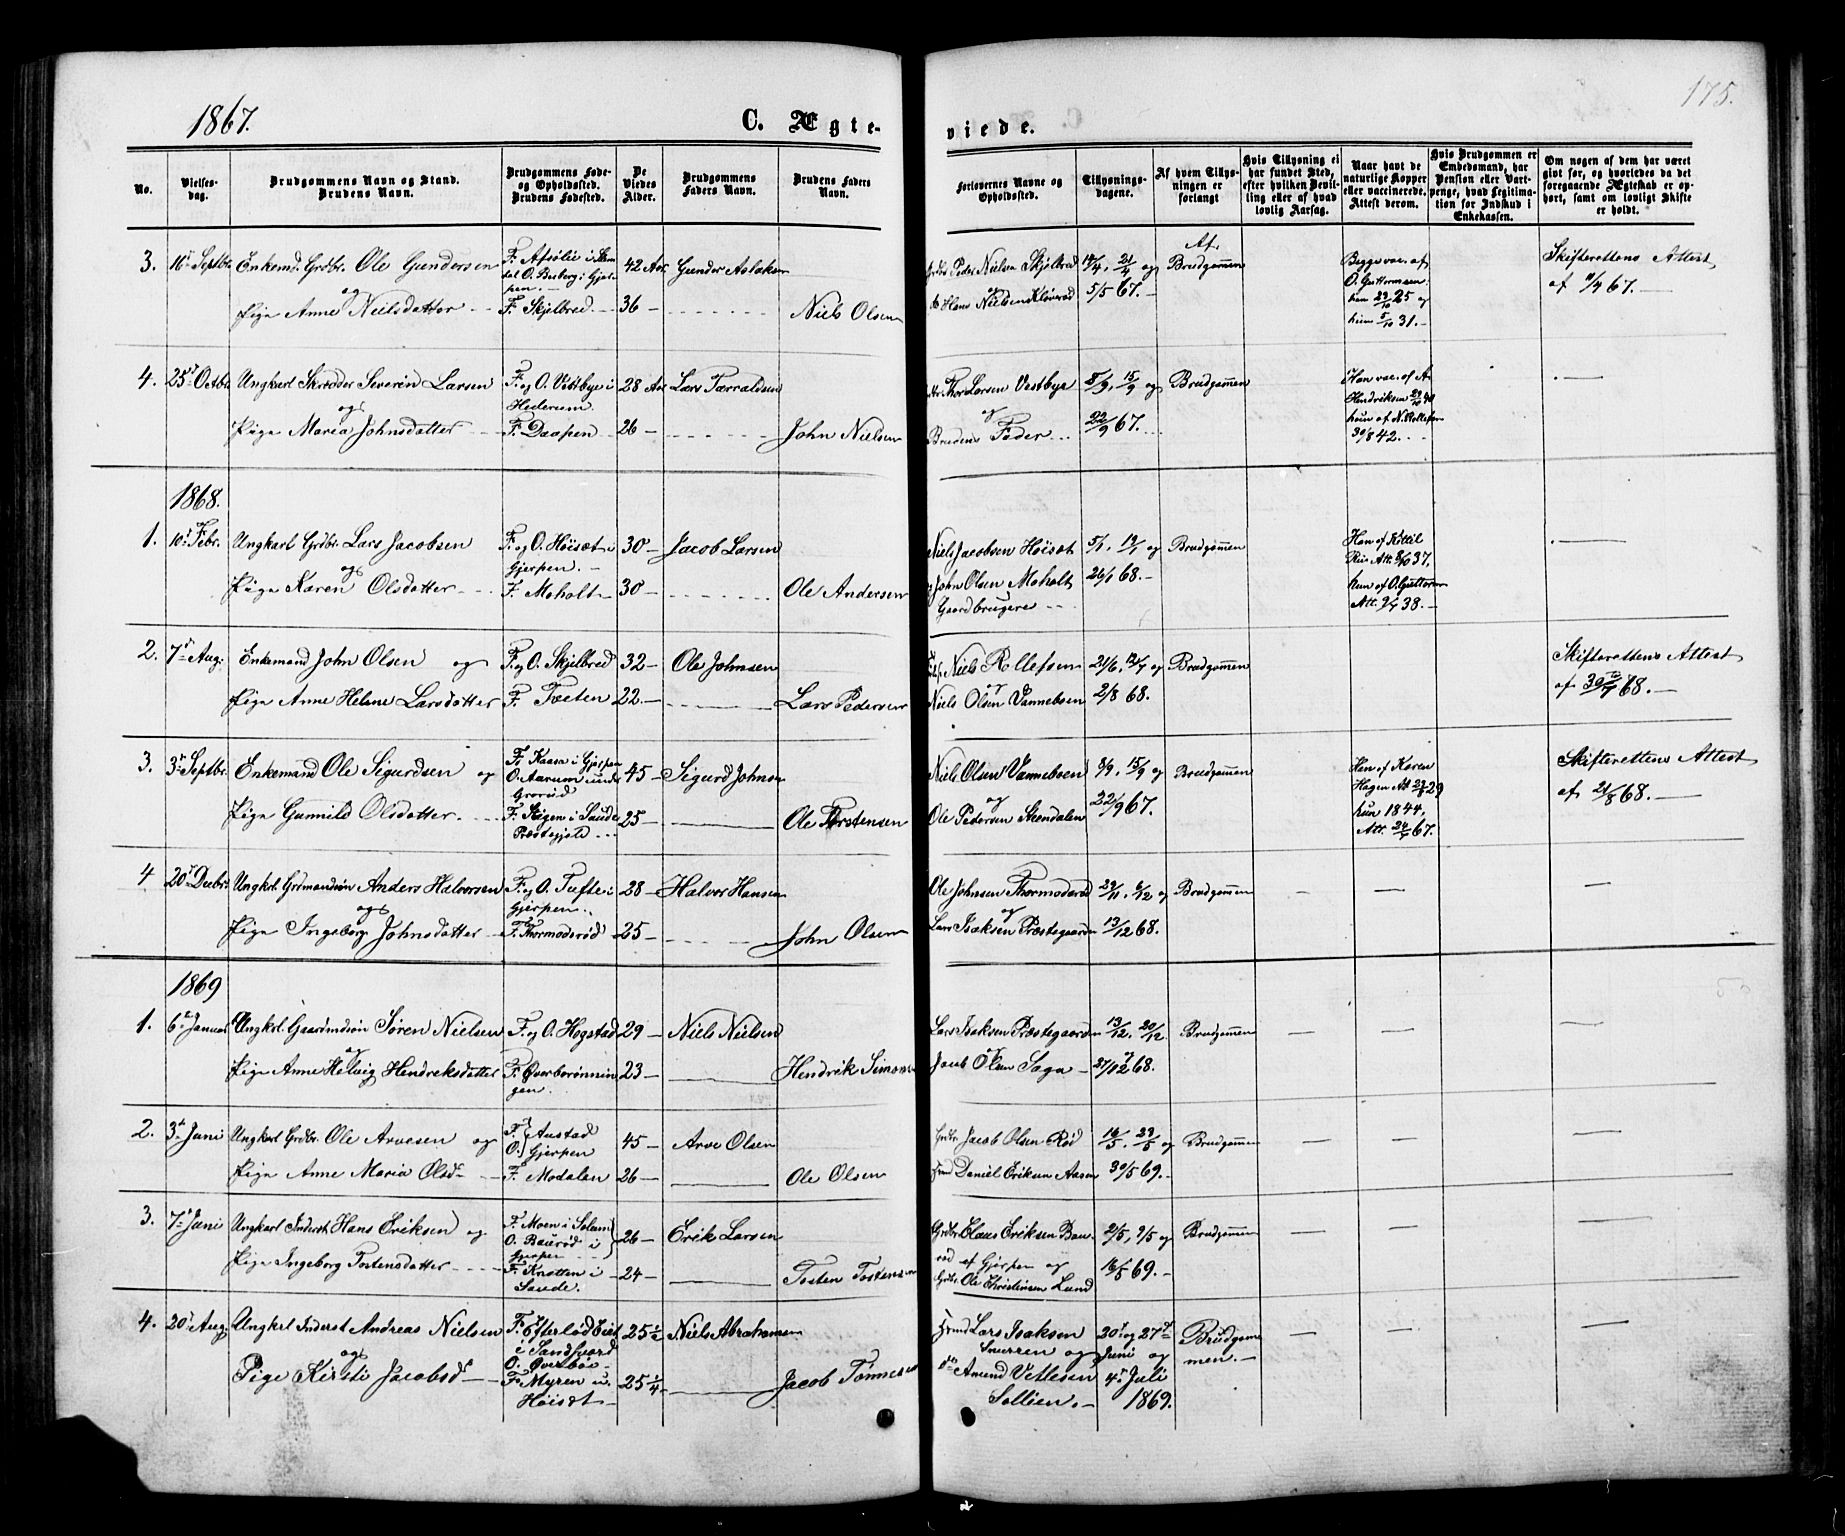 1867.
C. Ægte-
viede.
175.
No.
Vielses-
dag.
Brudgommens Navn og Stand.
Brudens Navn.
Brudgommens Føde-
og Opholdssted.
Brudens Fødested.
De
Viedes
Alder.
Brudgommens
Faders Navn.
Brudens Faders
Navn.
Forlovernes Navne og
Opholdssted.
Tillysnings-
dagene.
Af hvem Tillys-
ningen er
forlangt
Hvis Tillysning ei
har fundet Sted,
efter hvilken Bevil-
ling eller af hvad
lovlig Aarsag.
Naar havt de
naturlige Kopper
eller vaccinerede.
Attest derom.
Hvis Brudgommen er
Embedsmand, har
Pension eller Vart-
penge, hvad Legitima-
tion for Indskud i
Enkekassen.
Om nogen af dem har været
givt før, og hvorledes da det
foregaaende Ægteskab er op-
hørt, samt om lovligt Skifte
er holdt.
3. 16 Septbr Enkemd. Grdbr. Ole Gundersen 42 Aar Gunder Aslaksen
og
Pige Anne Nielsdatter F. Skjelbred 36 — Niels Olsen
Peder Nielsen Skjelbred 14/4, 21/4 og
Hans Nielsen 5/5 67.—
Af
Brudgommen
Begge vac. af
O. Guttormsen
han 29/10 25 og
hun 5/10 31.—
Skifterettens Attest
af 11/4 67.—
4. 25 Octbr Ungkarl Skrædder Severin Larsen F. og O. Vestbye i 28 Aar Lars Tarraldsen
og Hedrum.
Pige Maria Johnsdatter F. Daapen 26 — John Nielsen
Thor Larsen Vestbye 8/9, 15/9 og Brudgommen
og
Brudens Fader 22/9 67.
Han vac. af A
Hendriksen
hun af N. Rollefsen
30/8 42.
1868.
1. 10 Febr. Ungkarl Grdbr. Lars Jacobsen F. og O. Höisæt i 30 — Jacob Larsen
og Gjerpen.
Pige Karen Olsdatter F. Moholt 30 — Ole Andersen
Niels Jacobsen Höisæt 5/1, 19/1 og Brudgommen
John Olsen Moholt 26/1 68.—
Gaardbrugere
Han af Kittil
Riis Att. 8/10 37,
hun af O. Guttorm
Att. 38.—
2. 7 Aug: Enkemand John Olsen og F. og O. Skjelbred 32 — Ole Johnsen
Pige Anne Helene Larsdatter F. Tveten 22 — Lars Pedersen
Niels Rollefsen 21/6, 12/7 og Brudgommen
og
Niels Olsen Vanneboen 2/8 68.
Skifterettens Attest
af 68.—
3. 3 Septbr. Enkemand Ole Sigurdsen og F. Kaasa i Gjerpen 45 — Sigurd Johnsen
O. Aarum under
Grorud
Pige Gunnild Olsdatter. F. Stigen i Saude 25 — Ole Torstensen
Præstegjeld
Niels Olsen Vanneboen 8/9, 15/9 og Brudgommen
og
Ole Pedersen Steendalen 22/9 67.
Han af Karen
Hagen Att 29
hun 1844,
Att. 67.
Skifterettens Attest
af 21/8 68.—
4 20 Decbr. Ungkrl. Grdmandssøn Anders Halvorsen F. og O. Tufte i 28 — Halvor Hansen
og Gjerpen.
Pige Ingeborg Johnsdatter F. Thormodsrød 25 — John Olsen
Ole Johnsen Thormodsrød 29/11, 6/12 og Brudgommen
og
Lars Isaksen Præstegaarden 13/12 68.
1869
1. 6 Januar Ungkrl. Gaardmdssøn Søren Nielsen F. og O. Hogstad 29 — Niels Nielsen
og
Pige Anne Helvig Hendriksdatter F. Øverbørønnin 23 — Hendrik Simons
gen.
Lars Isaksen Præstegaarden 13/12, 20/12 Brudgommen
og
Jacob Olsen Saga 27/12 68.
2. 3 Juni Ungkarl Grdbr. Ole Arvesen og F. Austad 45 — Arve Olsen
O. Gjerpen
Pige Anne Maria Olsd F. Modalen 26 — Ole Olsen
Grdbr Jacob Olsen Rød 16/5, 23/5 og Brudgommen
Daniel Eriksen Aasen 30/5 69.—
3. 7 Juni Ungkarl Inderst Hans Eriksen og F. Moen i Solum 26 — Erik Larsen
O. Baurød i
Gjerpen
Pige Ingeborg Tostensdatter F. Knatten i 24 — Tosten Tostensen
Saude.
Grdbr Claus Eriksen Bau- 2/5, 9/5 og Brudgommen
rød af Gjerpen og
Grdbr. Ole Christensen Lund 16/5 69.—
4. 20 Aug: Ungkrl Inderst Andreas Nielsen F. Efterlød Eiet 25 1/2 Niels Abrahamsen
og i Sandsverd
O. Øverbøe
Pige Kirsti Jacobsd F. Myren u. 25 1/4 Jacob Tønnesen
Höisæt
Lars Isaksen 20 og 27 Brudgom
Snurren og Juni og men.—
Amund Vetlesen 4 Juli
Sollien.— 1869.